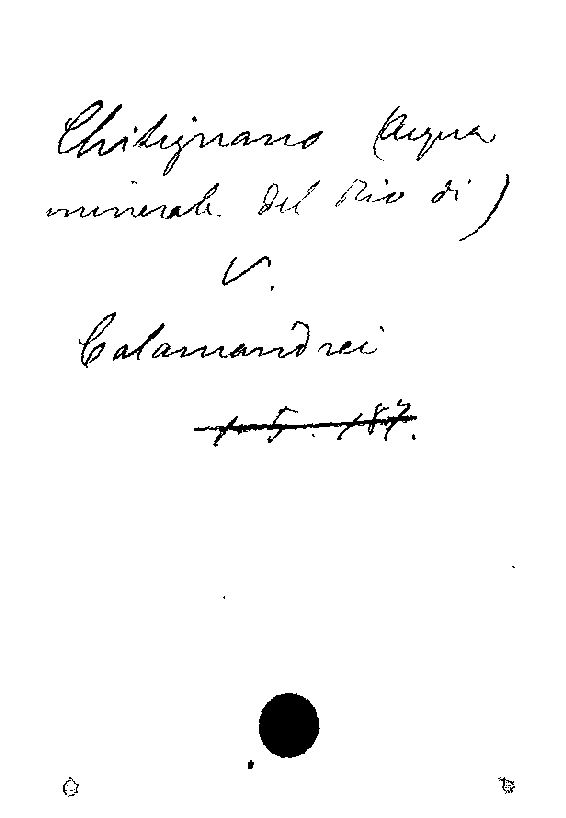 Chitignano (Acqua
minerale del Rio di)
V.
Calamandrei
1. 5. 187.